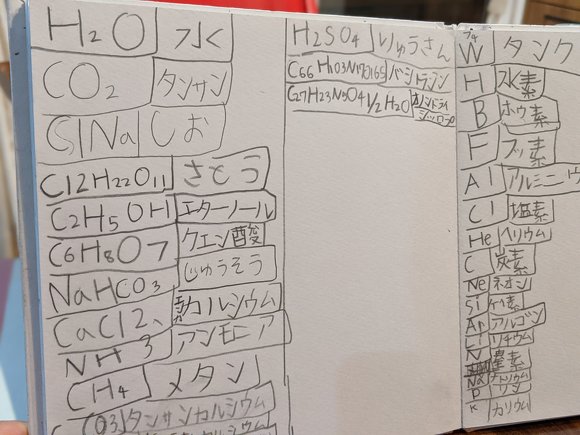 H2O 水
CO2 タンサン
ClNa しお
C12H22O11 さとう
C2H5OH エターノール
C6H8O7 クエン酸
NaHCO3 じゅうそう
CaCl2 カルシウム
NH3 アンモニア
CH4 メタン
CO3 タンサンカルシウム
H2SO4 りゅうさん
C66H103N17O16S バシトラシン
C27H23N5O4 1/2 H2O
W タンク
H 水素
B ホウ素
F フッ素
Al アルミニウ
Cl 塩素
He ヘリウム
C 炭素
Ne ネオン
Si ケイ素
Ar アルゴン
Li リチウム
N 窒素
Na ナトリウム
P リン
K カリウム